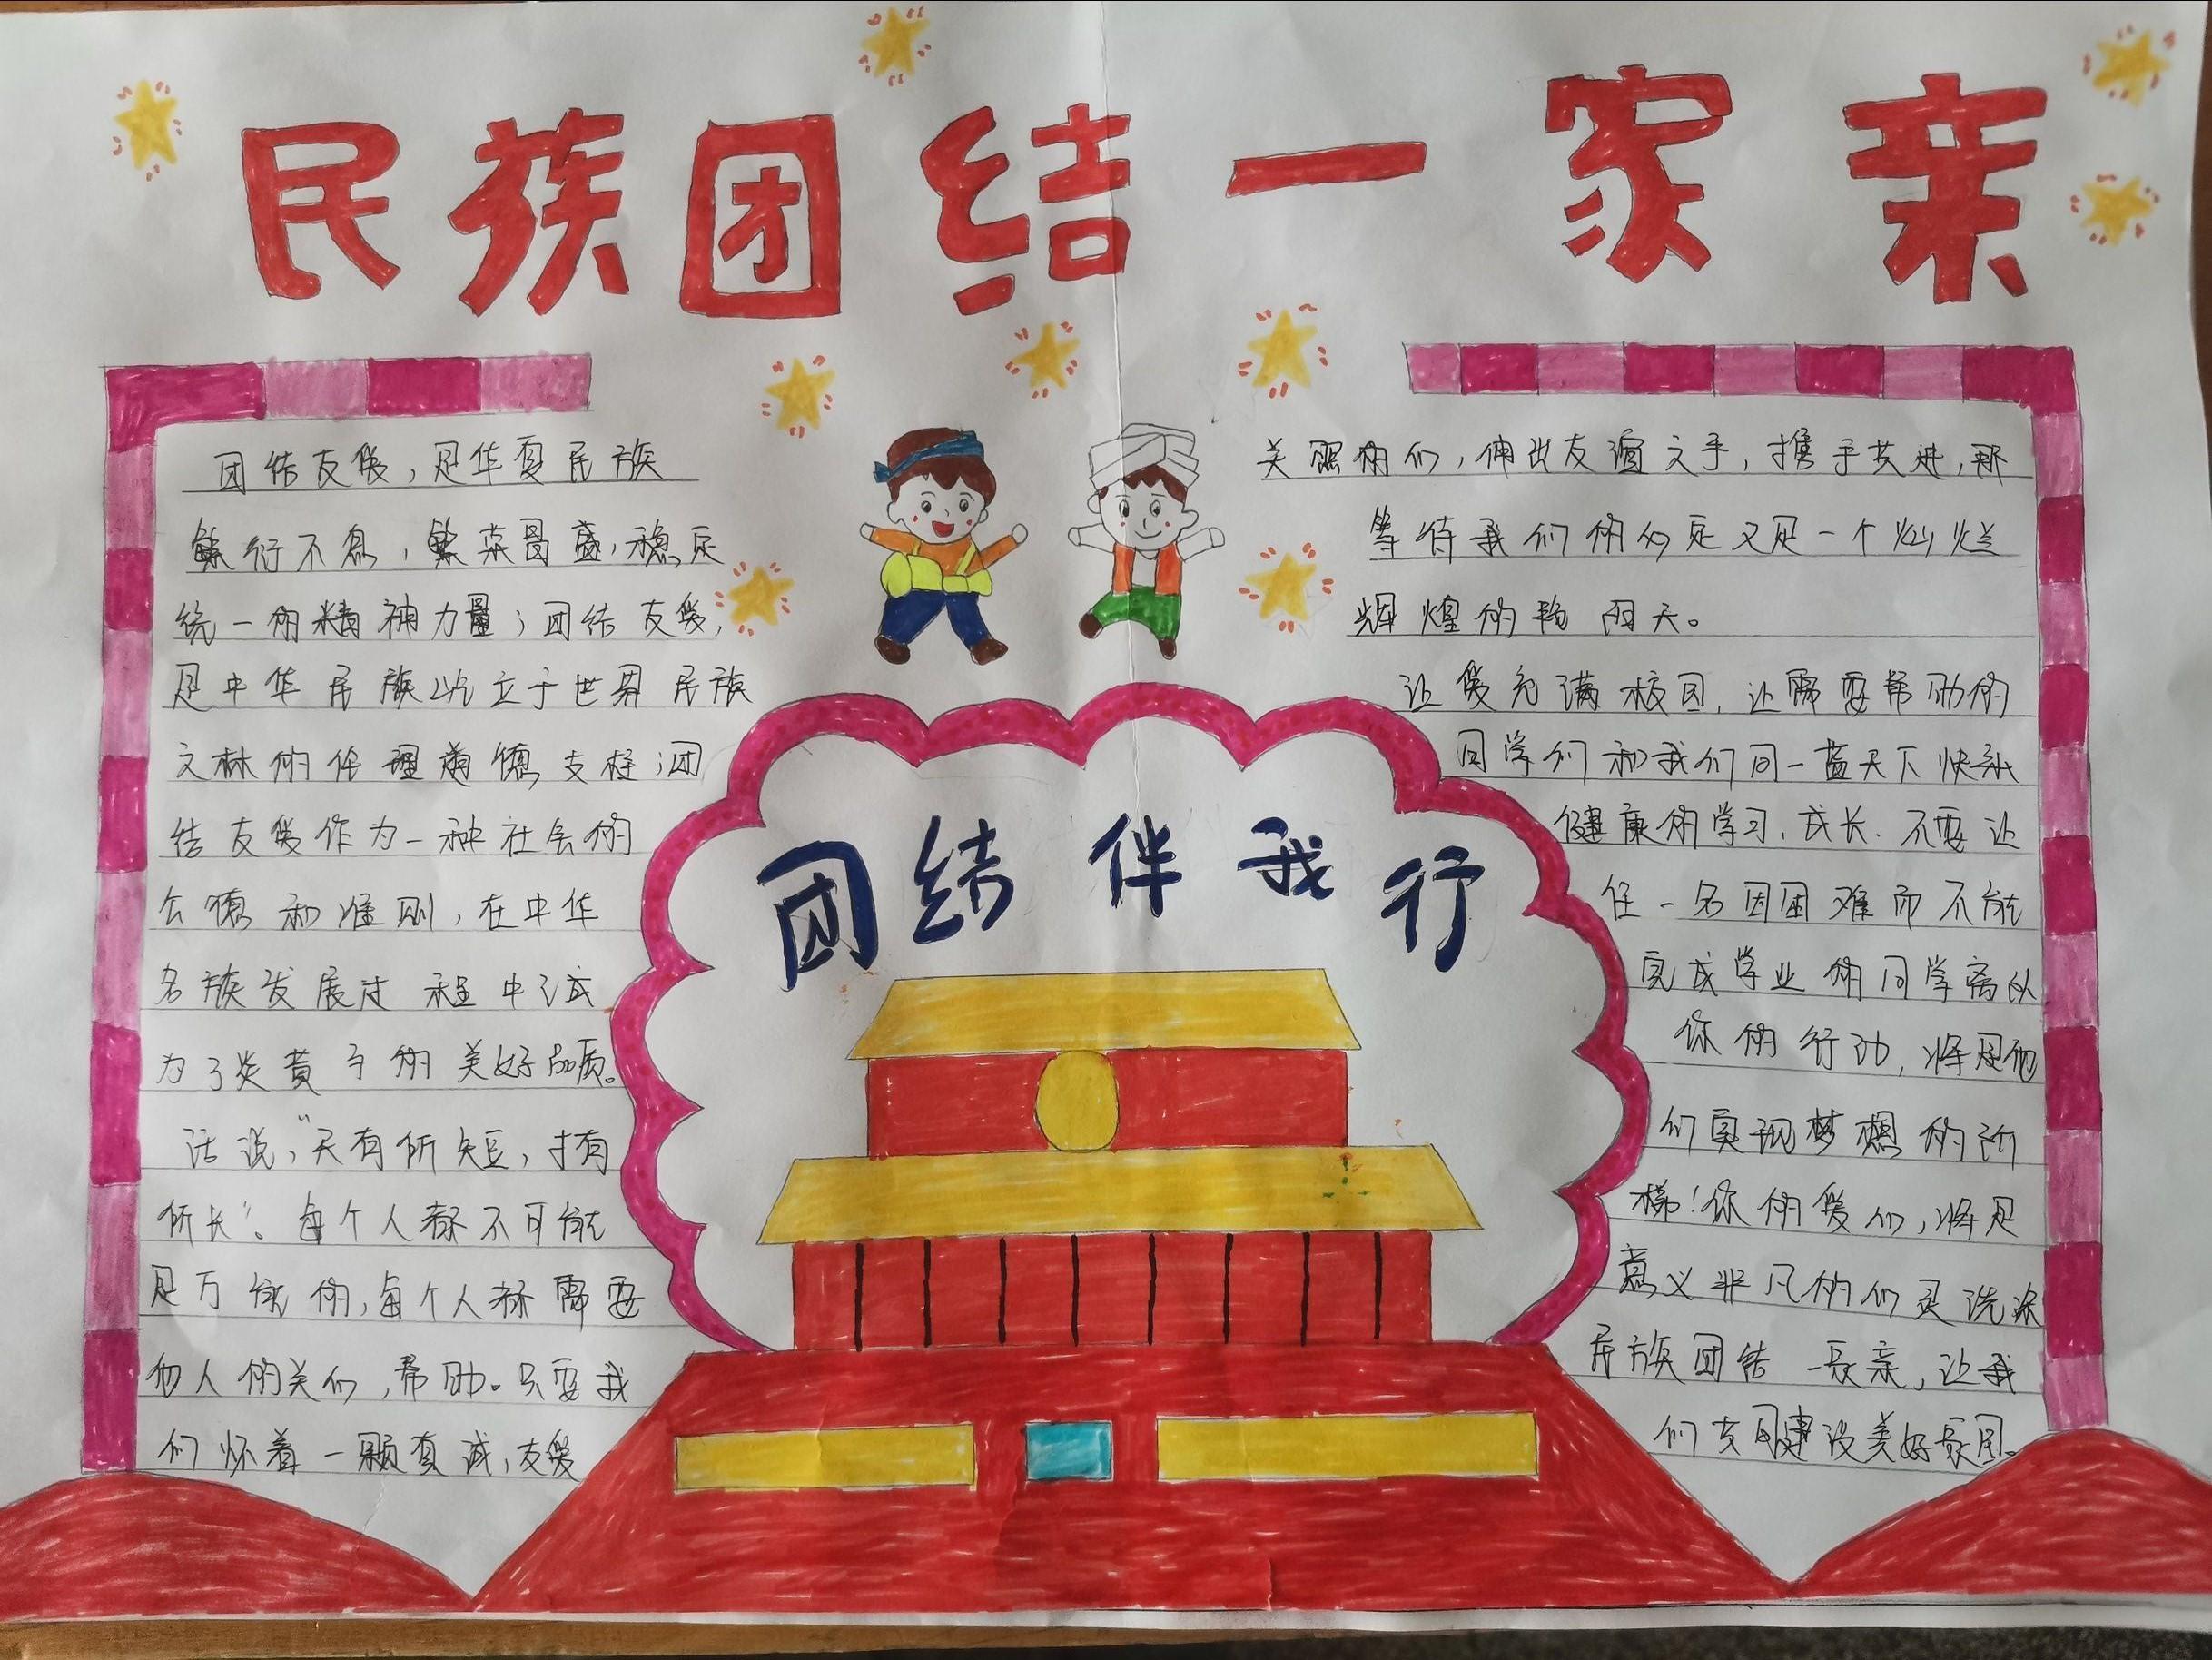 民族团结一家亲
团结友爱，是华夏民族
繁衍不息，繁荣昌盛，稳定
统一的精神力量；团结友爱，
是中华民族屹立于世界民族
之林的伦理道德支柱；团
结友爱作为一种社会的
公德和准则，在中华
名族发展过程中已成
为了炎黄子的美好品质。
话说，"天有所短，才有
所长"。每个人都不可能
是万能的，每个人都需要
他人的关们，帮助。只要我
们怀着一颗真诚，友爱
团结伴我行
关照的们，伸出友谊之手，携手共进，那
等待我们的必定又是一个灿烂
辉煌的艳阳天。
让爱充满校园，让需要帮助的
同学们和我们同一蓝天下快乐
健康的学习，成长．不要让
任一名因困难而不能
完成学业的同学离队
你的行动，将是他
们实现梦想的阶
梯！你的爱们，将是
意义非凡的们灵洗涤
民族团结一家亲，让我
们共同建设美好家园。